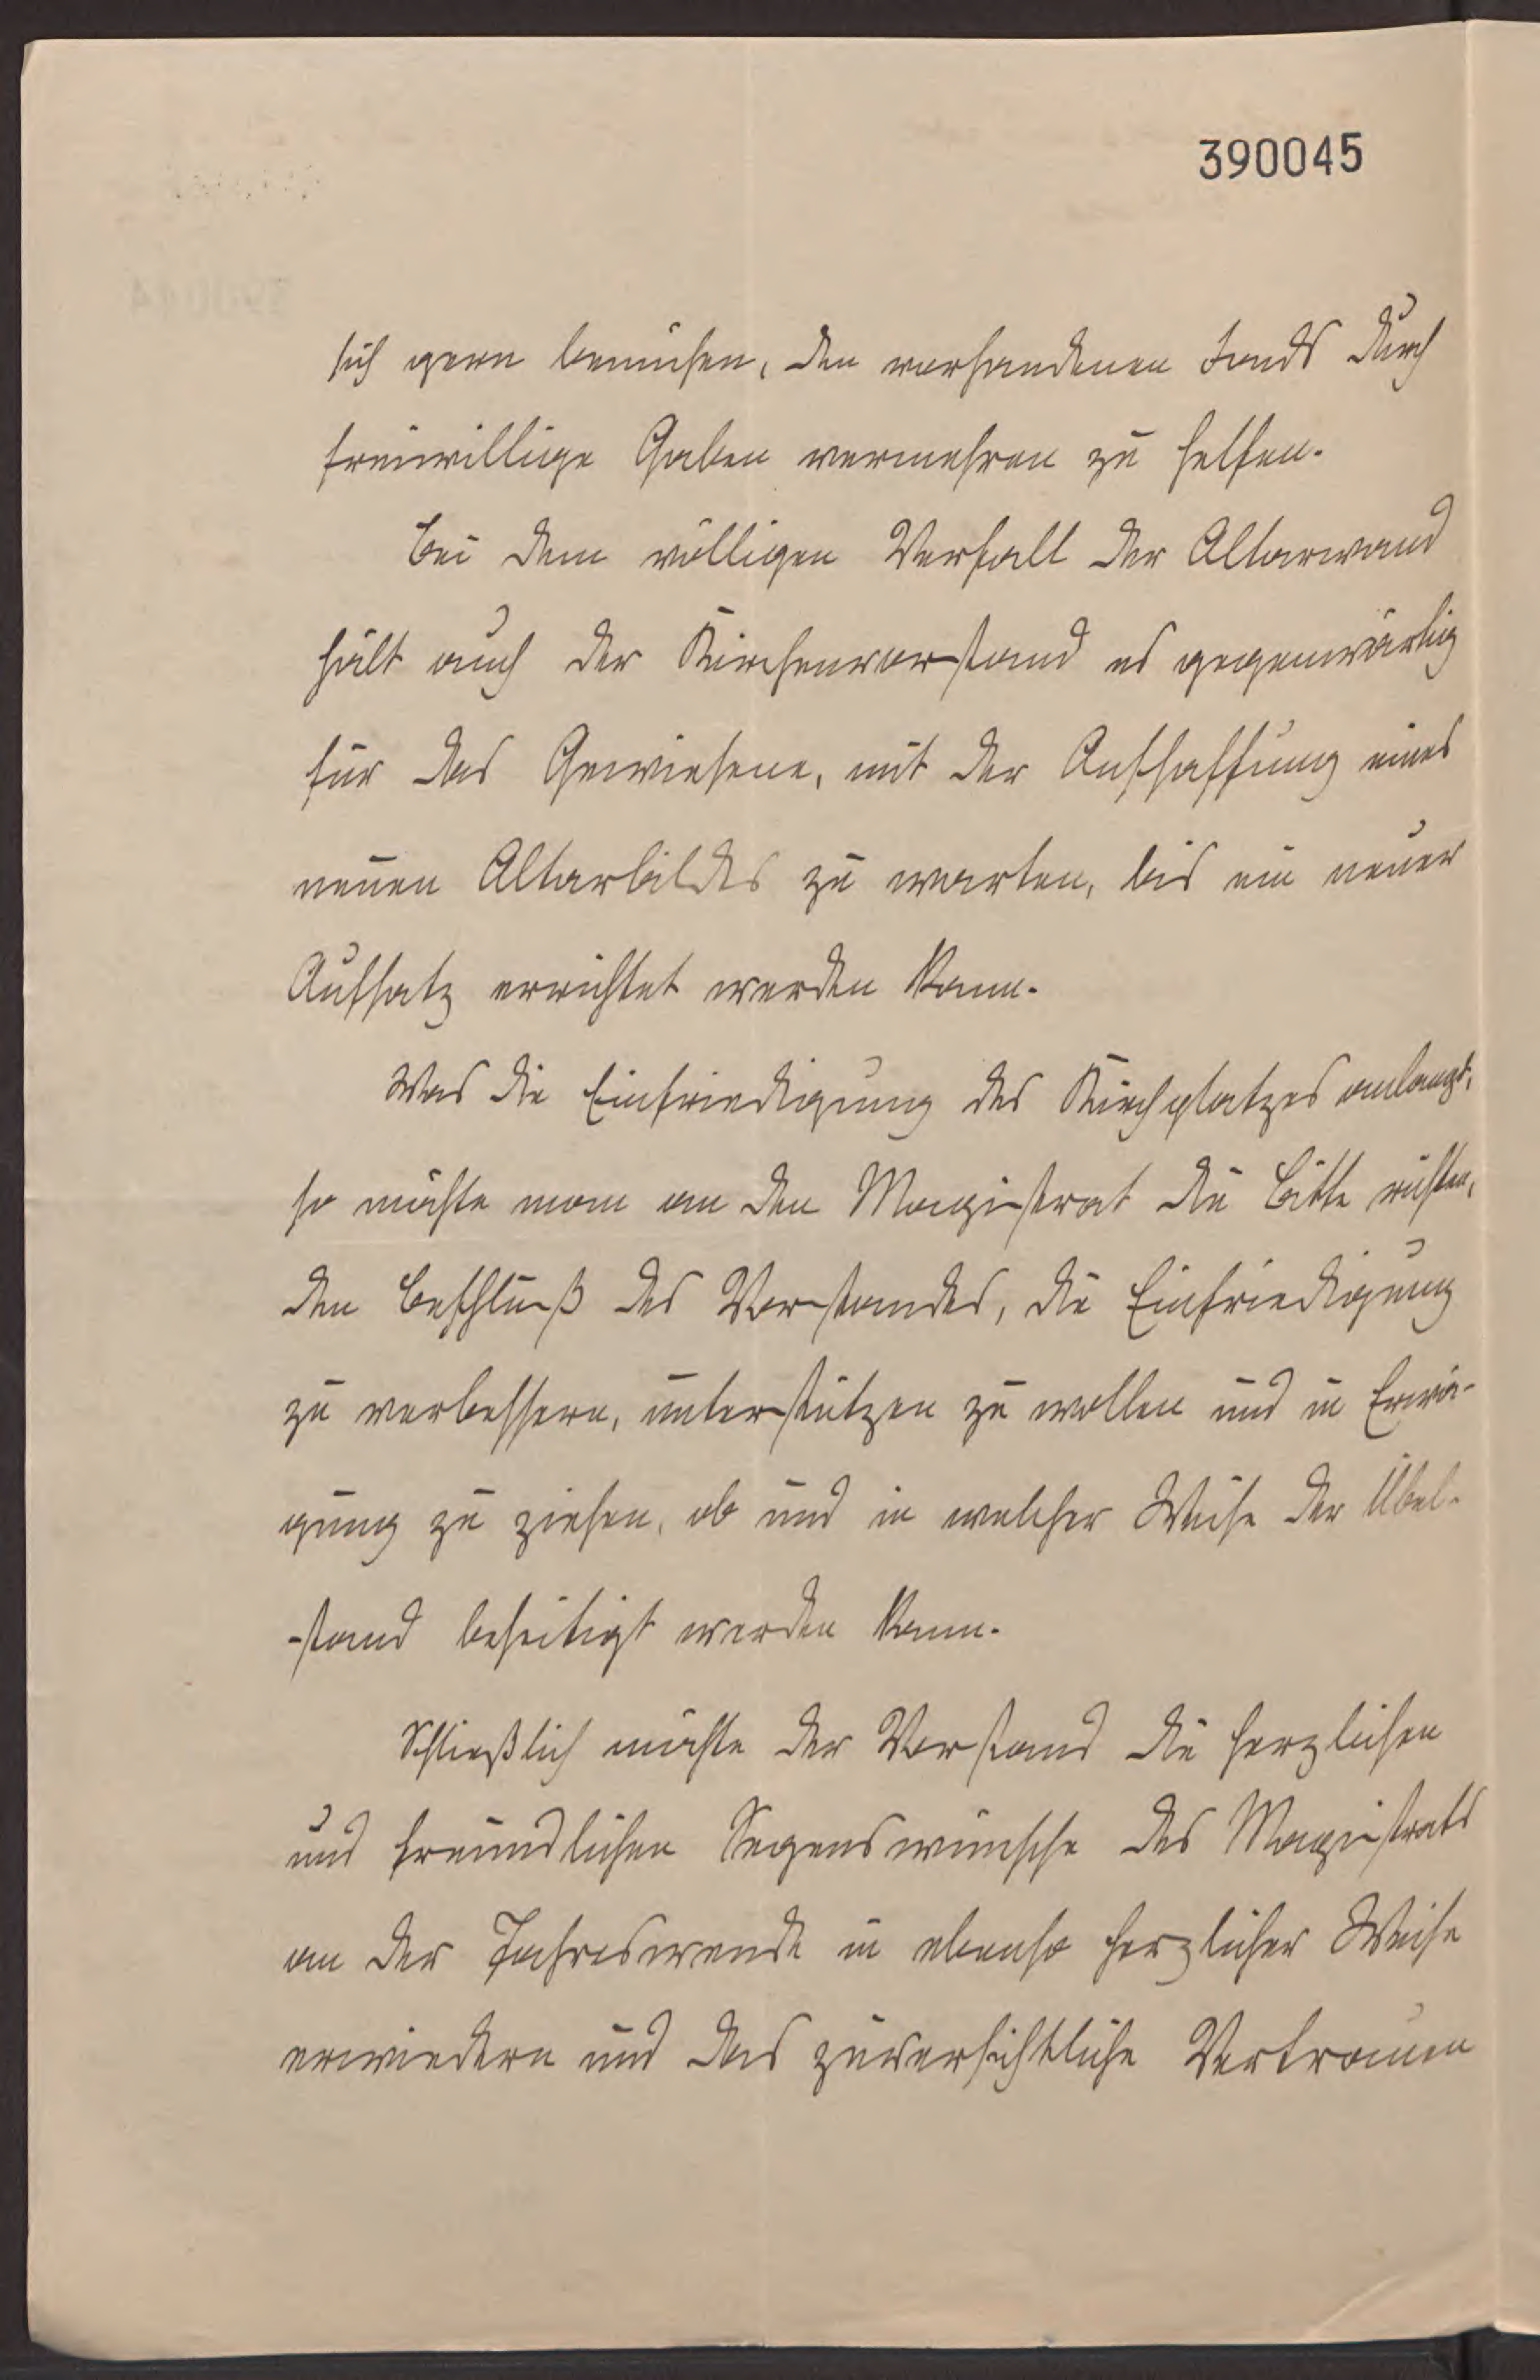 390045
sich gern bemühen, den vorhandenen Fonds durch
freiwillige Gaben vermehren zu helfen.
Bei dem völligen Verfall der Altarwand
hält auch der Kirchenvorstand es gegenwärtig
für das Gewiesene, mit der Anschaffung eines
neuen Altarbildes zu warten, bis ein neuer
Aufsatz errichtet werden kann.
Was die Einfriedigung des Kirchplatzes anlangt,
so möchte man an den Magistrat die Bitte richten,
den Beschluß des Vorstandes, die Einfriedigung
zu verbessern, unterstützen zu wollen und in Erwä-
gung zu ziehen, ob und in welcher Weise der Übel-
-stand beseitigt werden kann.
Schließlich möchte der Vorstand die herzlichen
und freundlichen Segenswünsche des Magistrats
an der Jahreswende in ebenso herzlicher Weise
erwiedern und das zuversichtliche Vertrauen